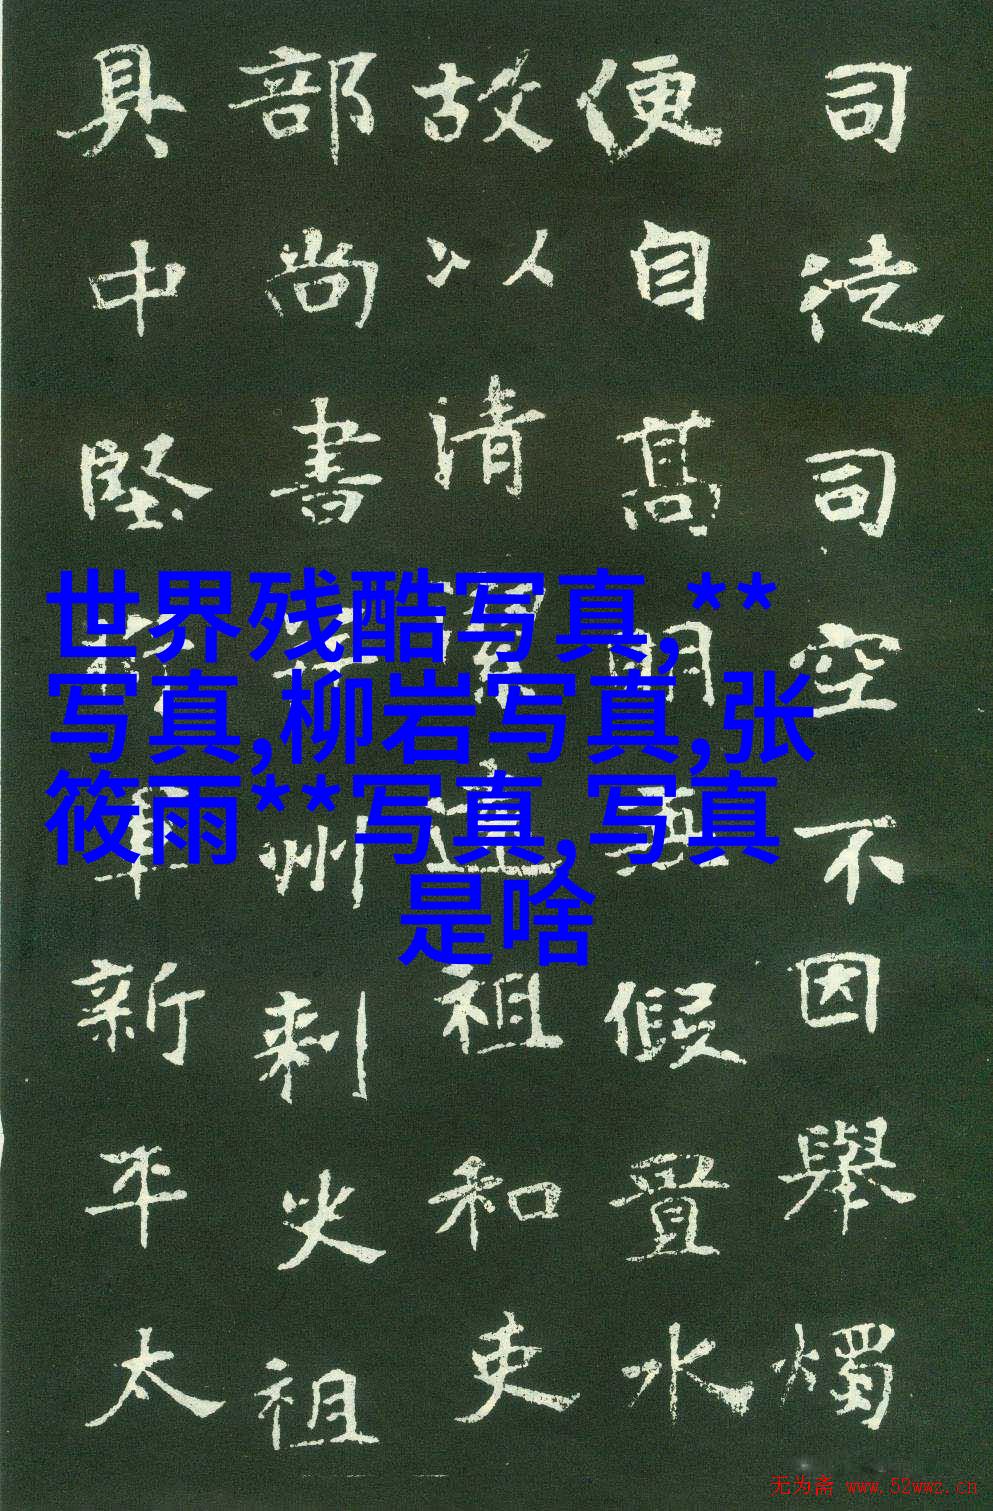 司徒司空不因舉燭
便自髙明假置水
故以清祖和吏
部尚書州刺史祖
具中堅軍新平太
世界残酷写真,**
写真,柳岩写真,张
筱雨**写真,写真
是啥
无为斋 www.52wwz.cn